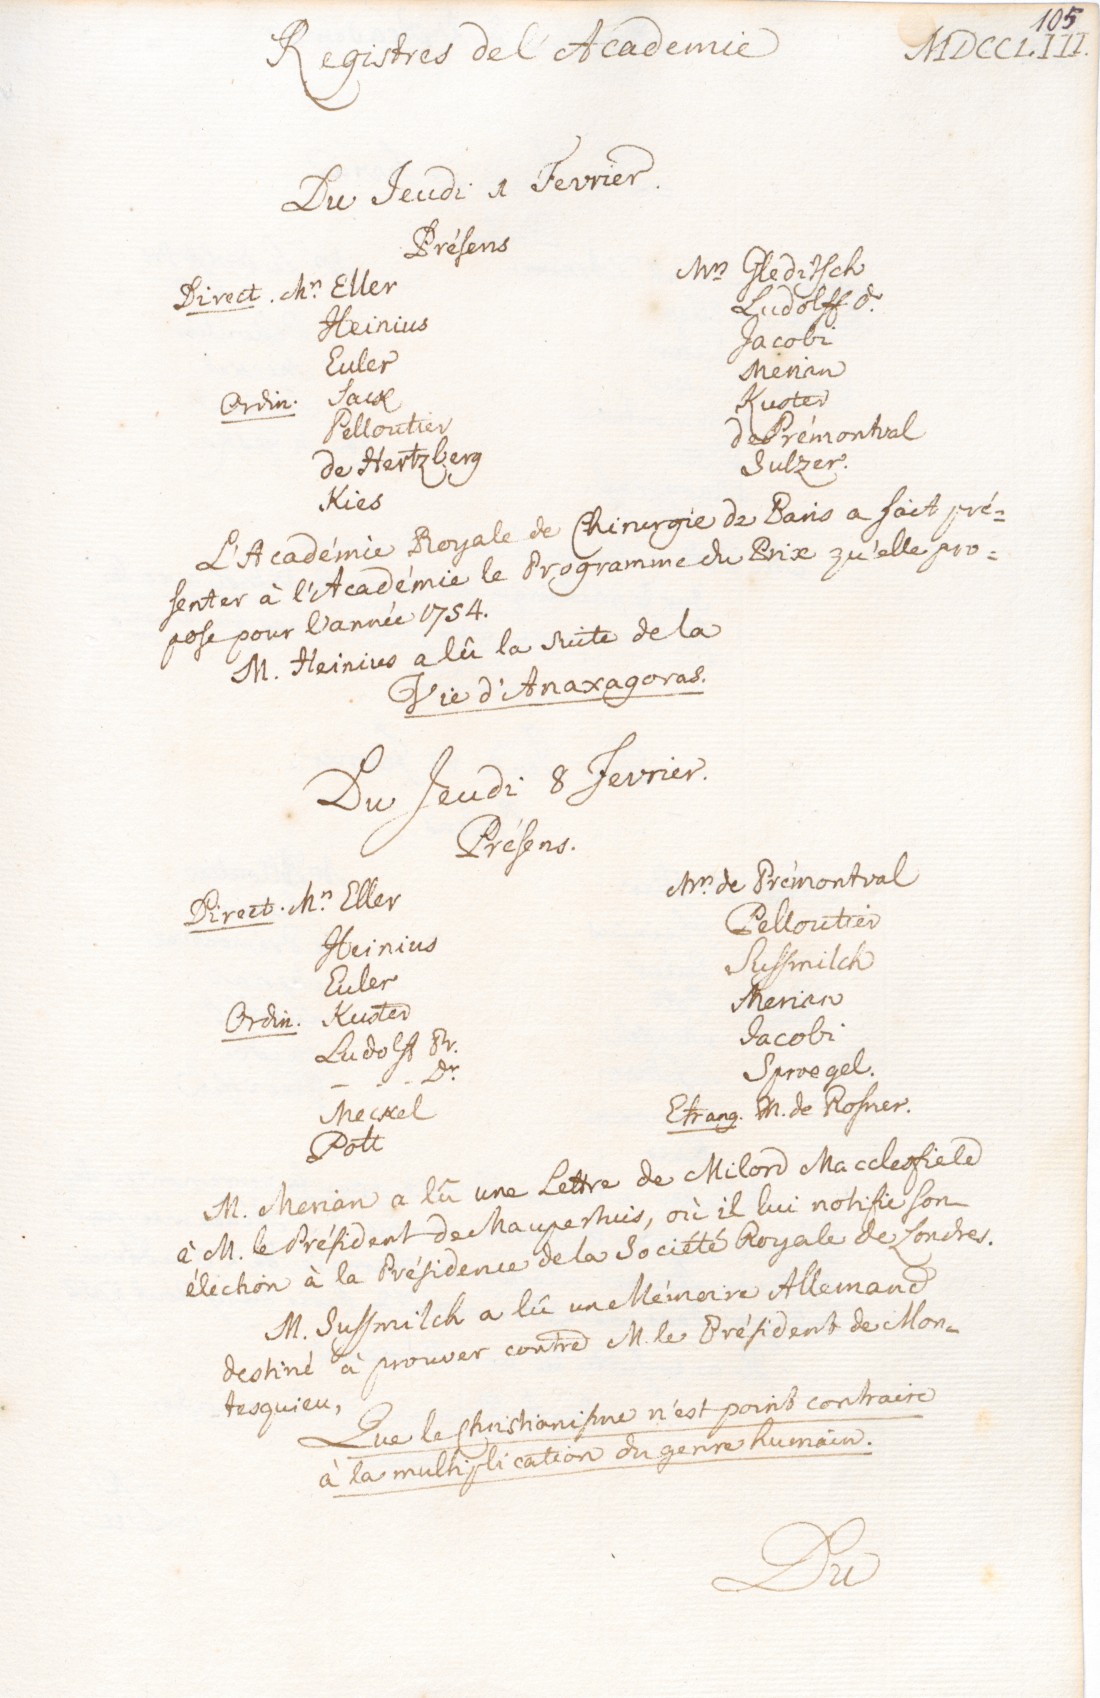 105
Registres de l'Academie MDCCLIII.
Du Jeudi 1 Fevrier.
Présens
Direct. Mrs. Eller
Heinius
Euler
Ordin. Sack
Pelloutier
de Hertzberg
Kies
Mrs Gleditsch
Ludolff d.
Jacobi
Merian
Kuster
de Prémontval
Sulzer.
L'Académie Royale de Chirurgie de Paris a fait pré=
senter à l'Académie le Programme du Prix qu'elle pro=
pose pour l'année 1754.
M. Heinius a lû la suite de la
Vie d'Anaxagoras.
Du Jeudi 8 Fevrier.
Présens.
Direct. Mrs. Eller
Heinius
Euler
Ordin. Kuster
Ludolff Pr.
- - - Dr.
Meckel
Pott
Mrs. de Prémontval
Pelloutier
Sussmilch
Merian
Jacobi
Sproegel.
Etrang. M. de Rosner.
M. Merian a lû une Lettre de Milord Macclesfield
à M. le Président de Maupertuis, où il lui notifie son
élection à la Présidence de la Société Royale de Londres.
M. Sussmilch a lû un Mémoire Allemand
destiné à prouver contre M. le Président de Mon=
tesquieu,
Que le Christianisme n'est point contraire
à la multiplication du genre humain.
Du